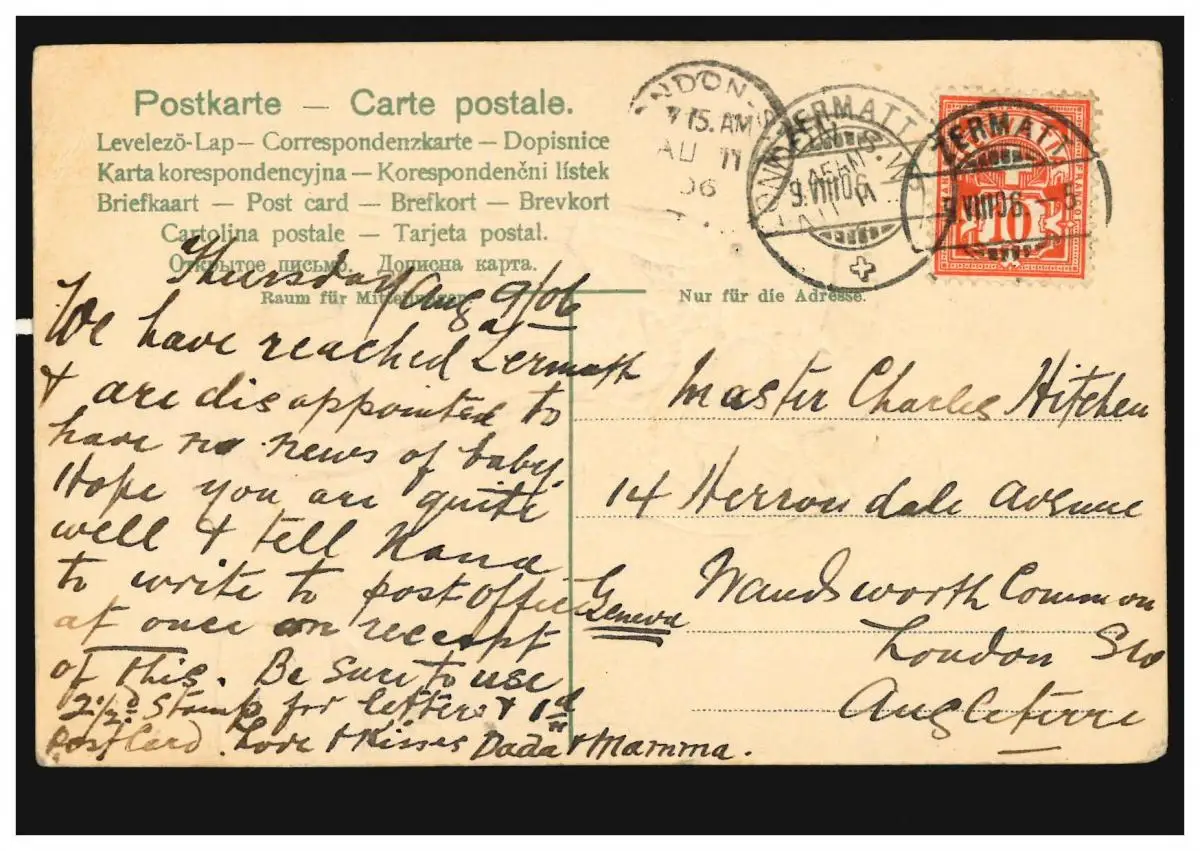 Postkarte — Carte postale.
Levelező-Lap — Correspondenzkarte — Dopisnice
Karta korespondencyjna — Korespondenční lístek
Briefkaart — Post card — Brefkort — Brevkort
Cartolina postale — Tarjeta postal.
Открытое письмо. Дописна карта.
Raum für Mitteilungen
Nur für die Adresse.
NDON.
7 15. AM
AU 11
06
ZERMATT
LONDON S.W.
9.VIII06
ZERMATT
9 VIII06. - 6
HELVETIA
10
Thursday Aug 9/06
We have reached Zermatt
& are disappointed to
have no news of baby.
Hope you are quite
well & tell Nana
to write to post office Geneva
at once on receipt
of this. Be sure to use
2½d stamp for letters & 1d
postcard. Love & Kisses Dada & Mamma.
Master Charles Hitchen
14 Herrondale Avenue
Wandsworth Common
London SW
Angleterre